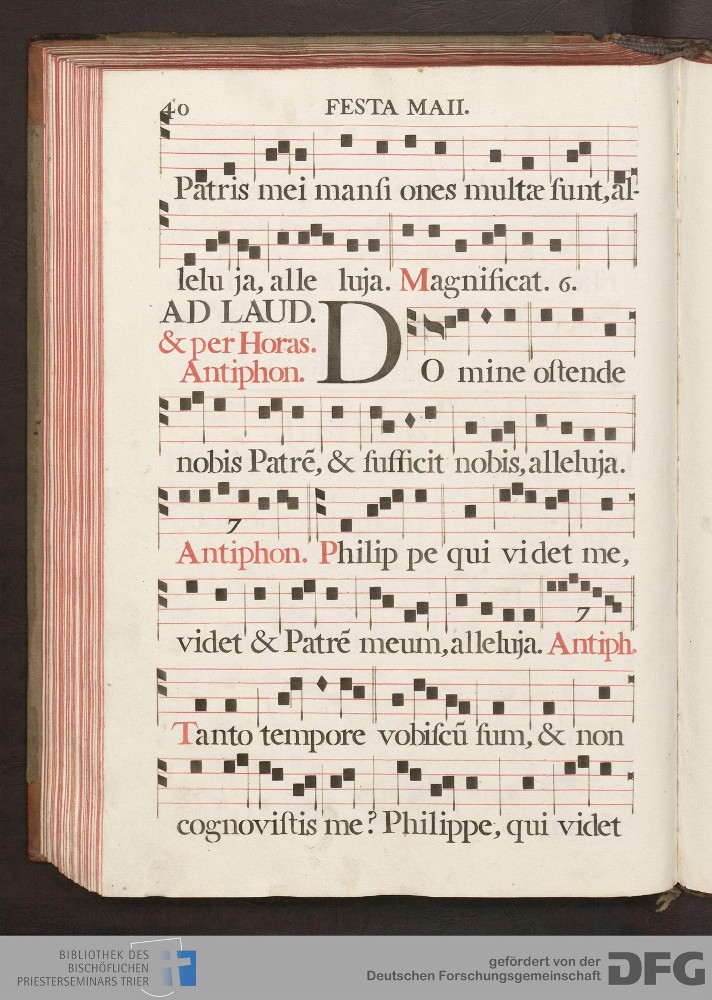 40 FESTA MAII.
Patris mei manſi ones multæ ſunt, al-
lelu ja, alle luja. Magnificat. 6.
AD LAUD.
& per Horas.
Antiphon.
DO mine oſtende
nobis Patrẽ, & ſufficit nobis, alleluja.
7
Antiphon. Philip pe qui videt me,
7
videt & Patrẽ meum, alleluja. Antiph.
Tanto tempore vobiſcũ ſum, & non
cognoviſtis me? Philippe, qui videt
BIBLIOTHEK DES
BISCHÖFLICHEN
PRIESTERSEMINARS TRIER
gefördert von der
Deutschen Forschungsgemeinschaft
DFG